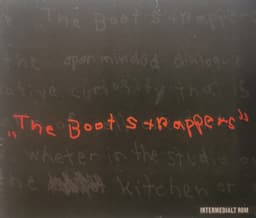 The Boot Strappers
the open minded dialogue
ative curiosity that is
„The Boot Strappers"
whether in the studio or
the kitchen or
INTERMEDIALT ROM